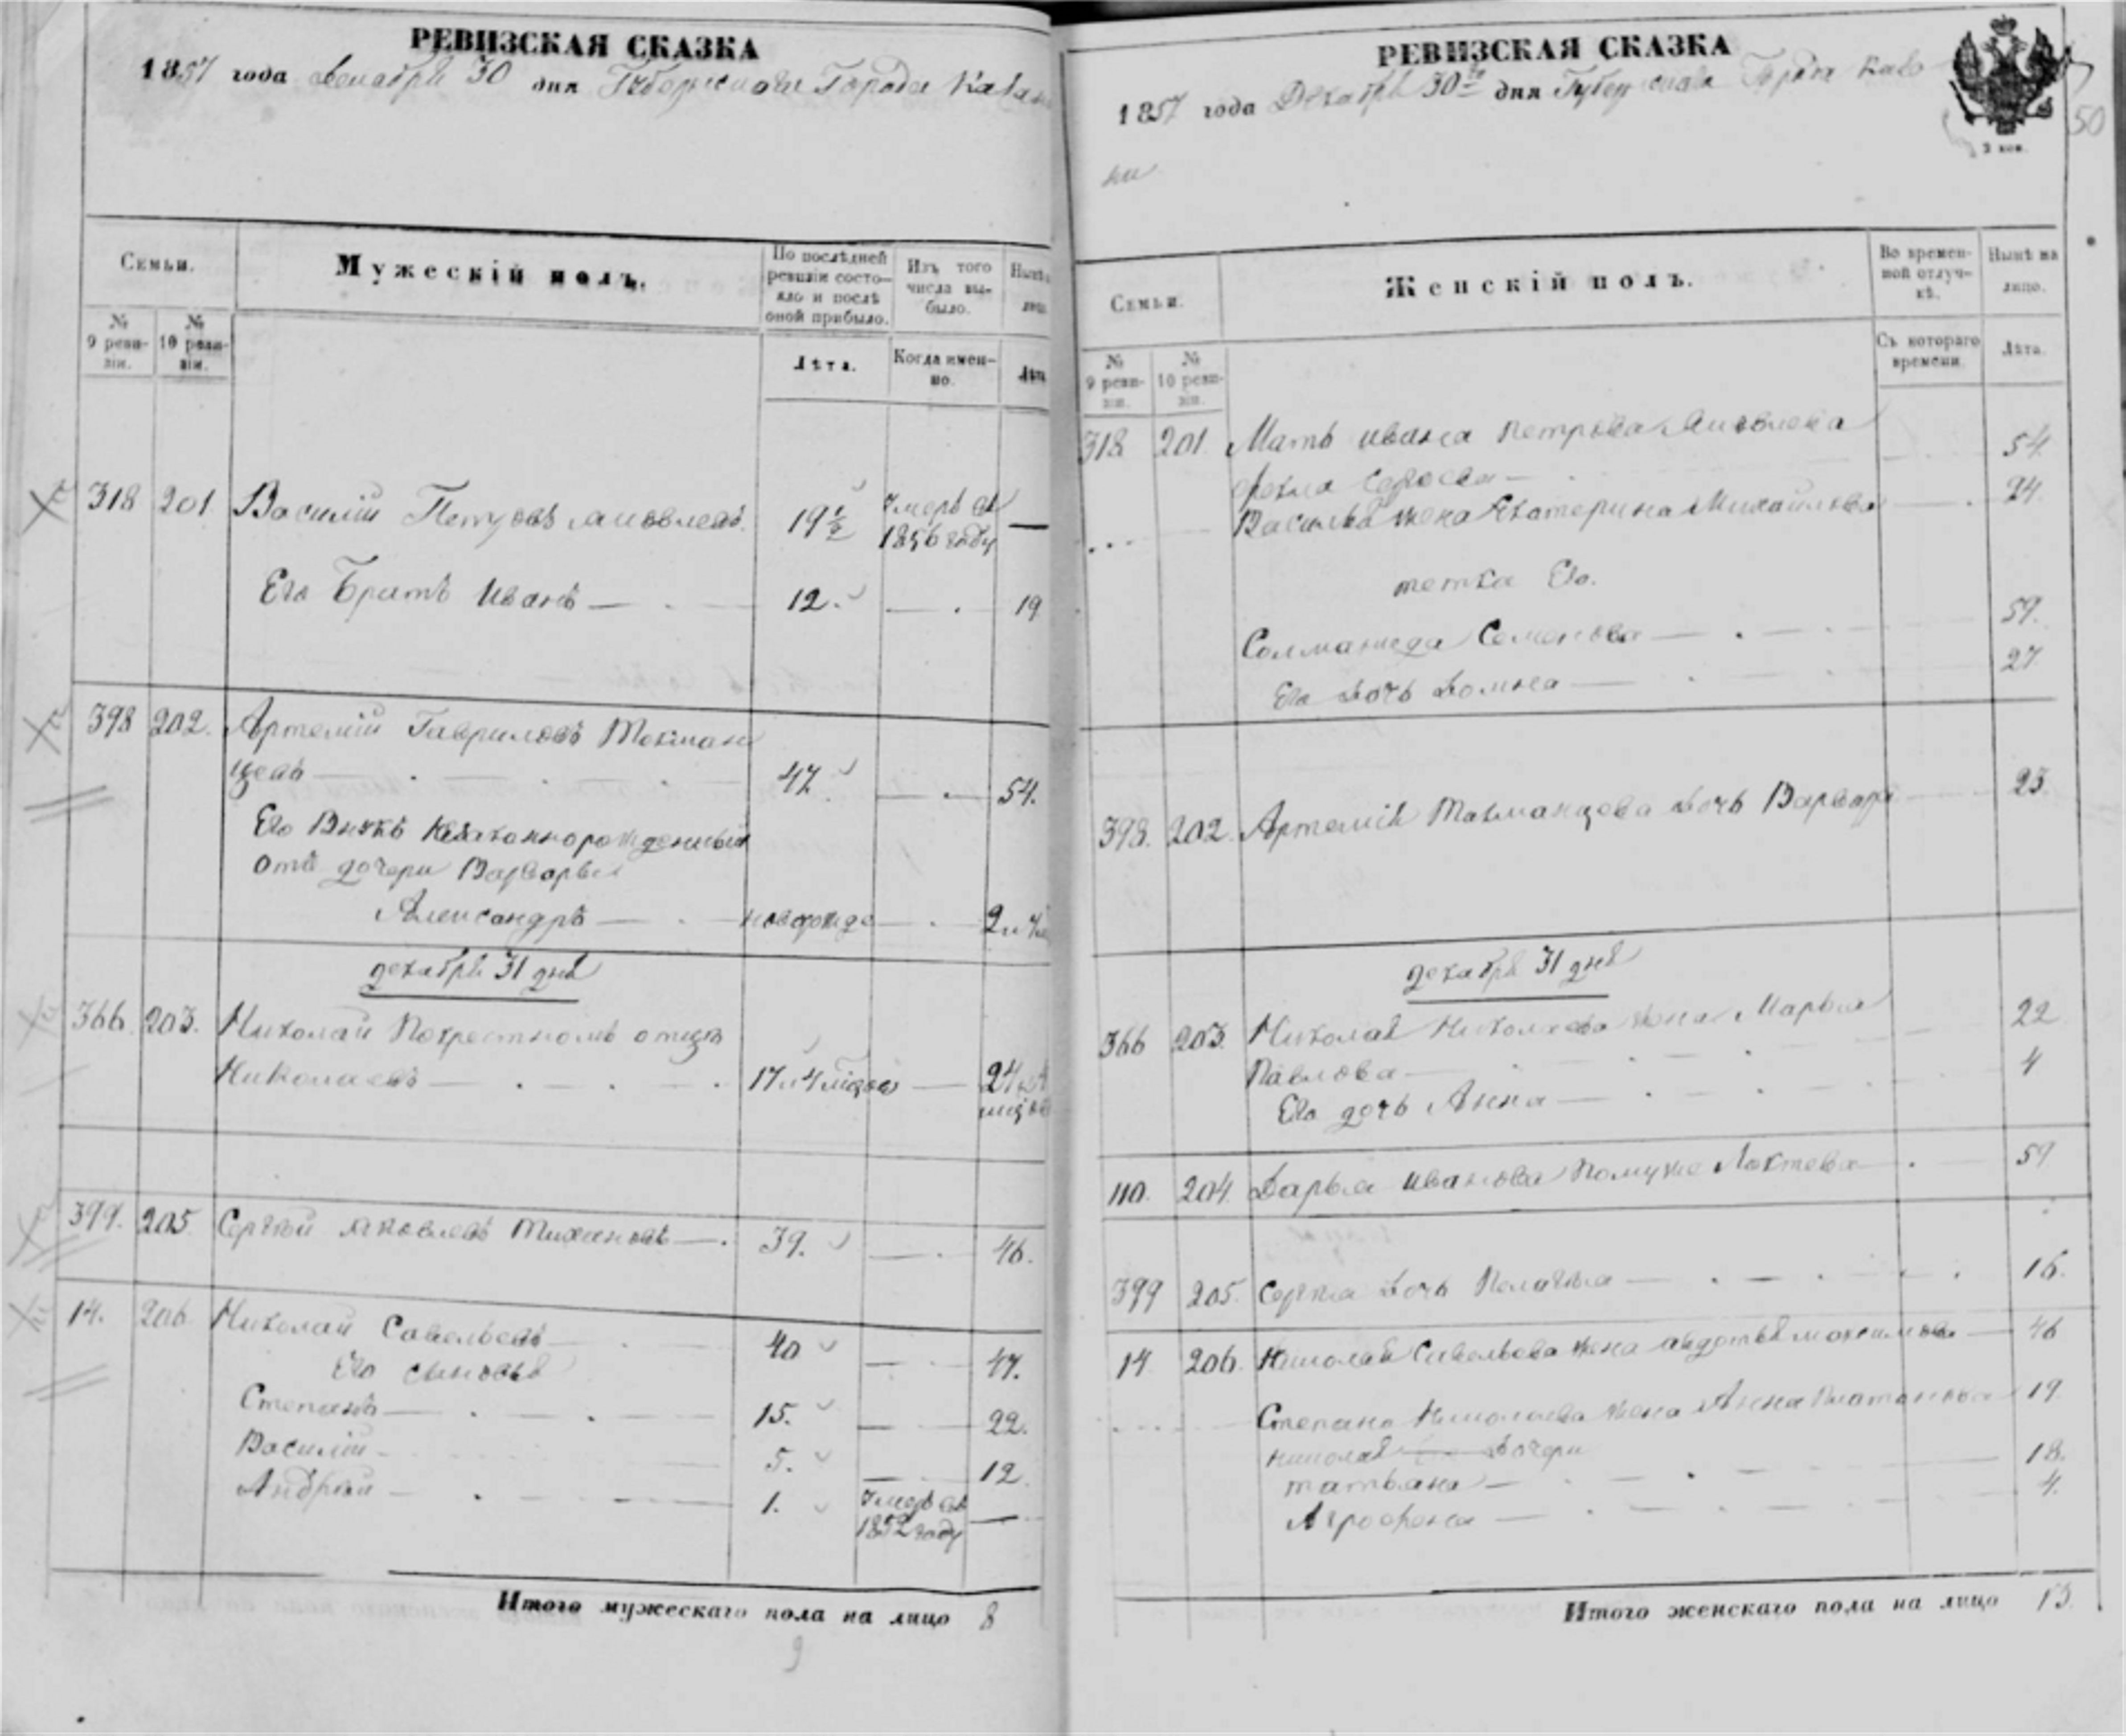 РЕВИЗСКАЯ СКАЗКА
1857 года Декабря 30 дня Губернскаго Города Казан
Семьи.
Мужескій полъ.
По послѣдней ревизіи состояло и послѣ оной прибыло.
Изъ того числа выбыло.
Нынѣ
лицо
№ 9 ревизіи.
№ 10 ревизіи.
Лѣта.
Когда именно.
Лѣта
318 201 Василій Петровъ Яковлевъ. 19½ Умеръ въ 1856 году —
Его Братъ Иванъ — 12. — 19
398 202. Артемій Гавриловъ Токман
цевъ — 47. — 54.
Его Внукъ Незаконнорожденный
отъ дочери Варвары
Александръ — новорожде — 2 и 4
декабря 31 дня
366. 203. Николай Покрестному отцу
Николаевъ — 17 и 4 місцов — 24 и 4 місцов
399. 205 Сергѣй Яковлевъ Тихановъ — 39. — 46.
14. 206 Николай Савельевъ — 40 — 47.
Его сыновья
Степанъ — 15. — 22.
Василій — 5. — 12.
Андрей — 1. Умеръ въ 1852 году —
Итого мужескаго пола на лицо 8
9
РЕВИЗСКАЯ СКАЗКА
1857 года Декабря 30го дня Губернскаго Города Каза
ни
3 коп.
50
Семьи.
Женскій полъ.
Во временной отлучкѣ.
Нынѣ на лицо.
№ 9 ревизіи.
№ 10 ревизіи.
Съ котораго времени.
Лѣта.
318 201. Мать Ивана Петрова Яковлева 54.
Василья жена Екатерина Михайлова — 24.
тетка Его.
Соломанида Семенова — 59.
Ея Дочь Домна — 27
398. 202. Артемія Токманцева Дочь Варвара — 23.
декабря 31 дня
366 203. Николая Николаева жена Марья 22
Павлова —
Его дочь Анна — 4
110. 204. Дарья Иванова Помуже Локтева 59
399 205. Сергѣя Дочь Пелагѣя — 16.
14. 206. Николая Савельева жена Авдотья Максимова — 46
Степана Николаева жена Анна Платонова 19.
Николая Дочери
Татьяна — 18.
Аграфена — 4.
Итого женскаго пола на лицо 13.